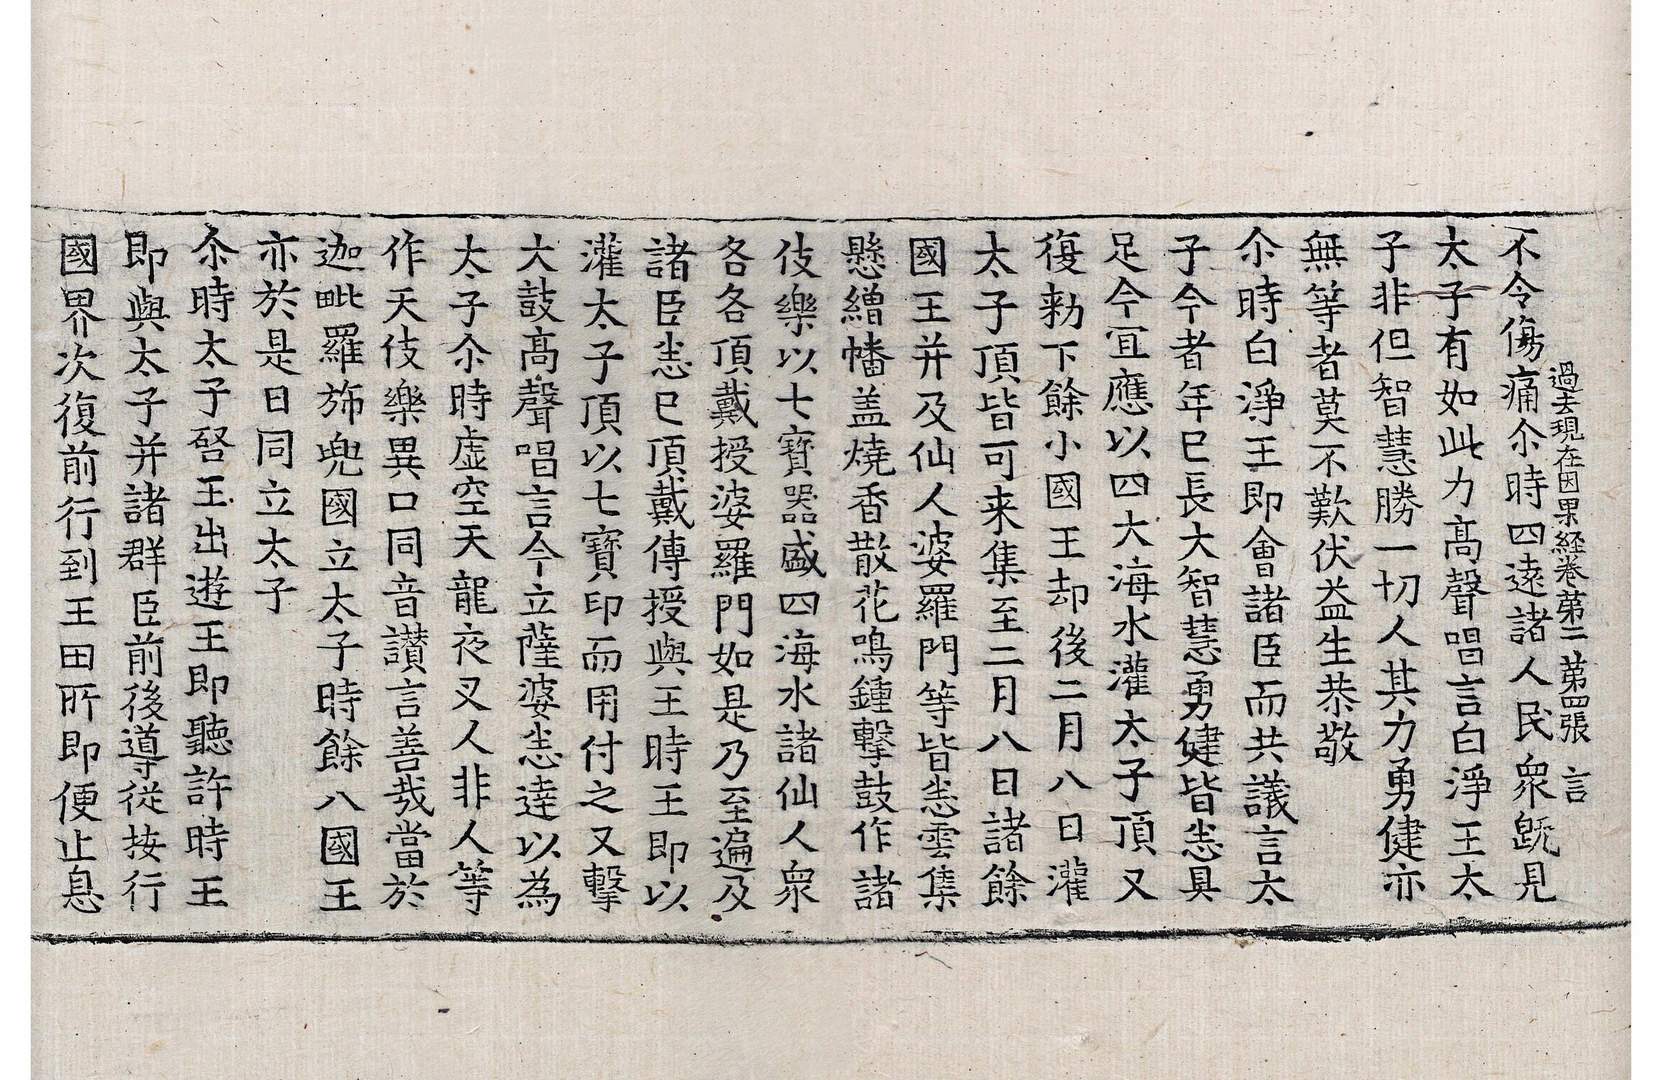 過去現在因果経巻第二 第四張 言
不令傷痛尒時四遠諸人民衆旣見
太子有如此力髙聲唱言白淨王太
子非但智慧勝一切人其力勇健亦
無等者莫不歎伏益生恭敬
尒時白淨王即會諸臣而共議言太
子今者年已長大智慧勇健皆悉具
足今宜應以四大海水灌太子頂又
復勑下餘小國王却後二月八日灌
太子頂皆可来集至二月八日諸餘
國王并及仙人婆羅門等皆悉雲集
懸繒幡盖燒香散花鳴鍾擊鼓作諸
伎樂以七寶器盛四海水諸仙人衆
各各頂戴授婆羅門如是乃至遍及
諸臣悉已頂戴傳授與王時王即以
灌太子頂以七寶印而用付之又擊
大鼓髙聲唱言今立薩婆悉達以為
太子尒時虚空天龍夜叉人非人等
作天伎樂異口同音讃言善哉當於
迦毗羅斾兜國立太子時餘八國王
亦於是日同立太子
尒時太子啓王出遊王即聽許時王
即與太子并諸群臣前後導從按行
國界次復前行到王田所即便止息